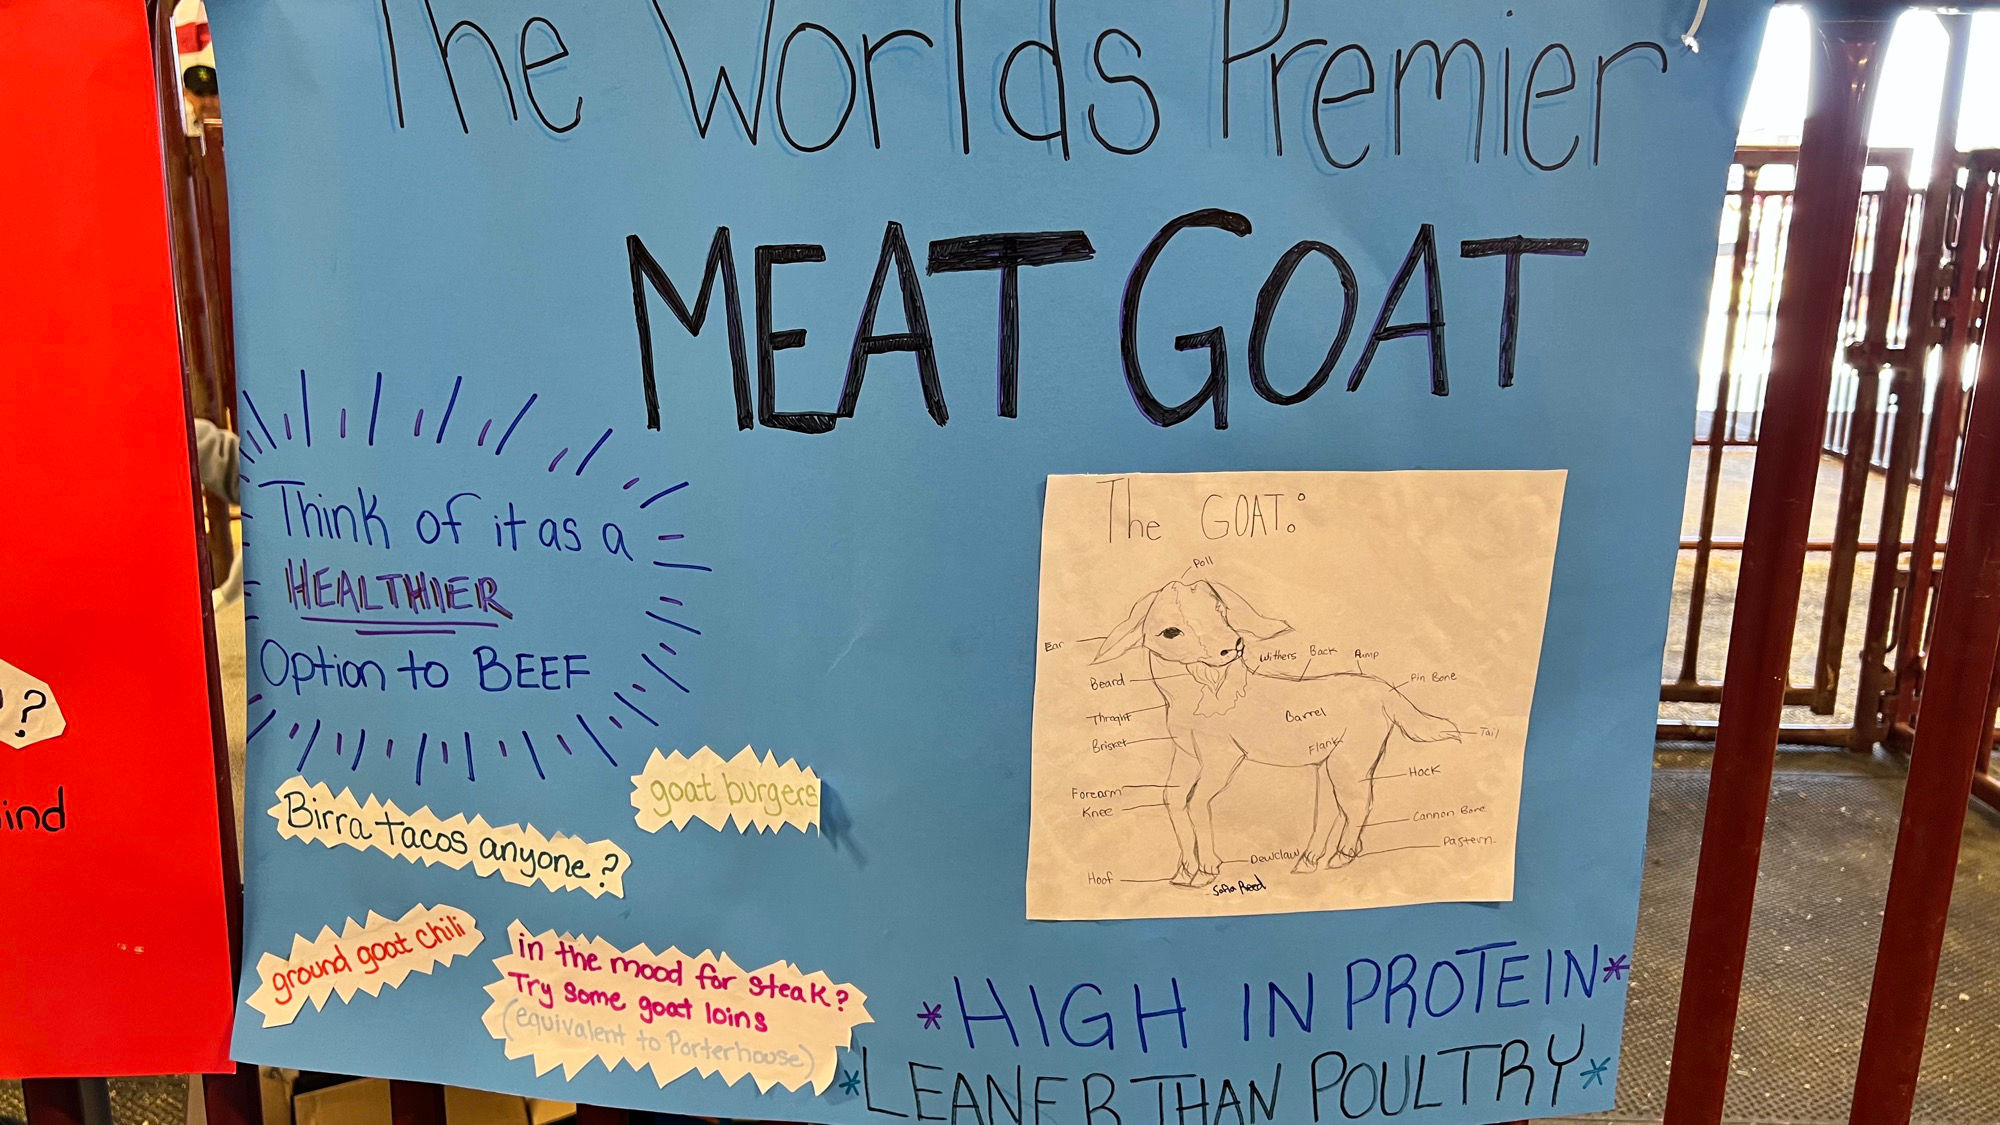 The Worlds Premier
MEAT GOAT
Think of it as a
HEALTHIER
Option to BEEF
goat burgers
Birra tacos anyone?
ground goat chili
in the mood for steak?
Try some goat loins
(equivalent to Porterhouse)
The GOAT:
Poll
Ear
Withers
Back
Rump
Pin Bone
Beard
Throght
Barrel
Brisket
Flank
Tail
Hock
Forearm
Knee
Cannon Bone
Pastern
Dewclaw
Hoof
Sofia Reed
*HIGH IN PROTEIN*
*LEANER THAN POULTRY*
?
ind